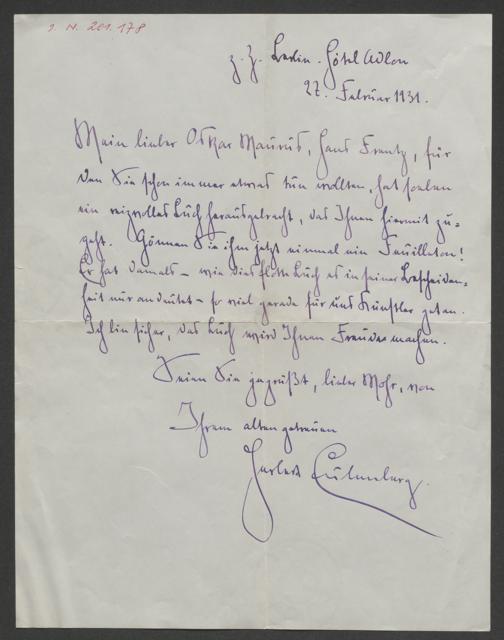 I. N. 201.178
z. Z. Berlin. Hôtel Adlon
27. Februar 1931.
Mein lieber Oskar Maurus, Hans Frentz, für
den Sie schon immer etwas tun wollten, hat soeben
ein reizvolles Buch herausgebracht, das Ihnen hiermit zu=
geht. Gönnen Sie ihm jetzt einmal ein Feuilleton!
Er hat damals – wie dies Buch es in seiner Bescheiden=
heit nur andeutet – so viel gerade für uns Künstler getan.
Ich bin sicher, das Buch wird Ihnen Freude machen.
Seien Sie gegrüßt, lieber Mohr, von
Ihrem alten getreuen
Herbert Eulenberg.